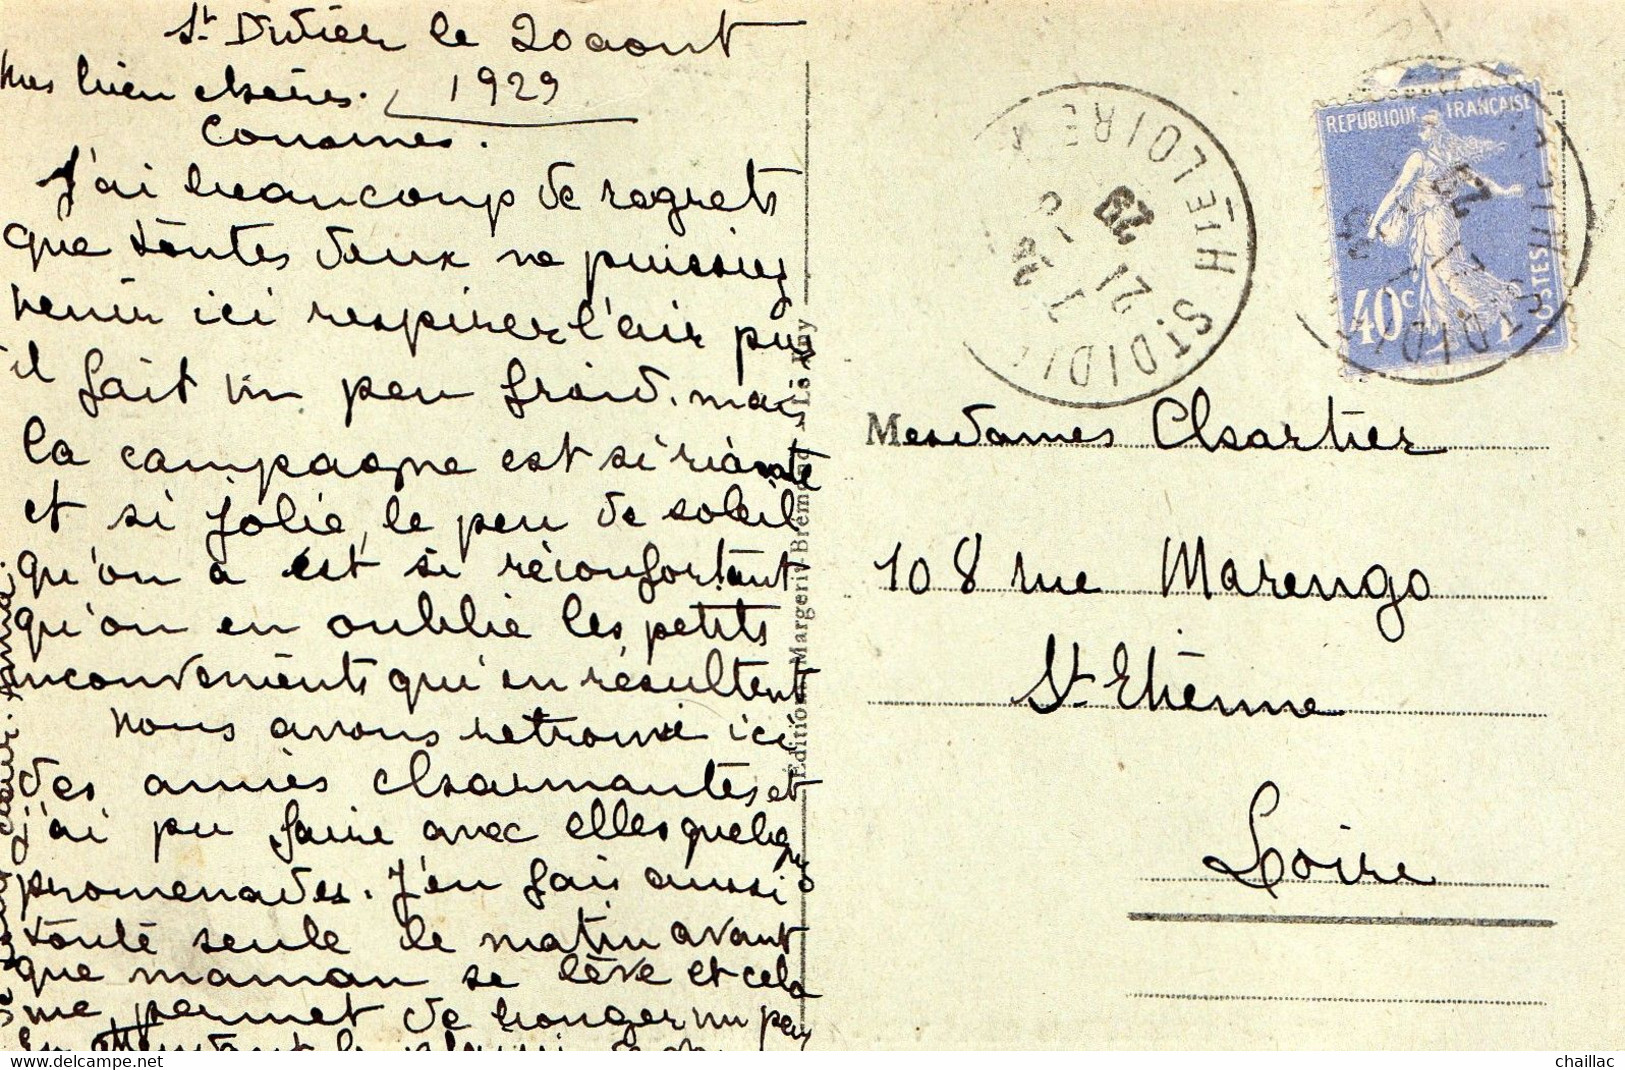 St Didier le 20 aout
1929
Mes bien chères
cousines.
J'ai beaucoup de regrets
que toutes deux ne puissiez
venir ici respirer l'air pur
il fait un peu froid, mais
la campagne est si riante
et si jolie, le peu de soleil
qu'on a est si réconfortant
qu'on en oublie les petits
inconvénients qui en résultent
nous avons retrouvé ici
des amies charmantes et
j'ai pu faire avec elles quelques
promenades. J'en fais aussi
toute seule le matin avant
que maman se lève et cela
me permet de bouger un peu
Editions Margerit-Brémond - Le Puy
ST DIDIER
HTE LOIRE
21
29
REPUBLIQUE FRANÇAISE
40c
POSTES
Mesdames Chartier
108 rue Marengo
St-Etienne
Loire
chaillac